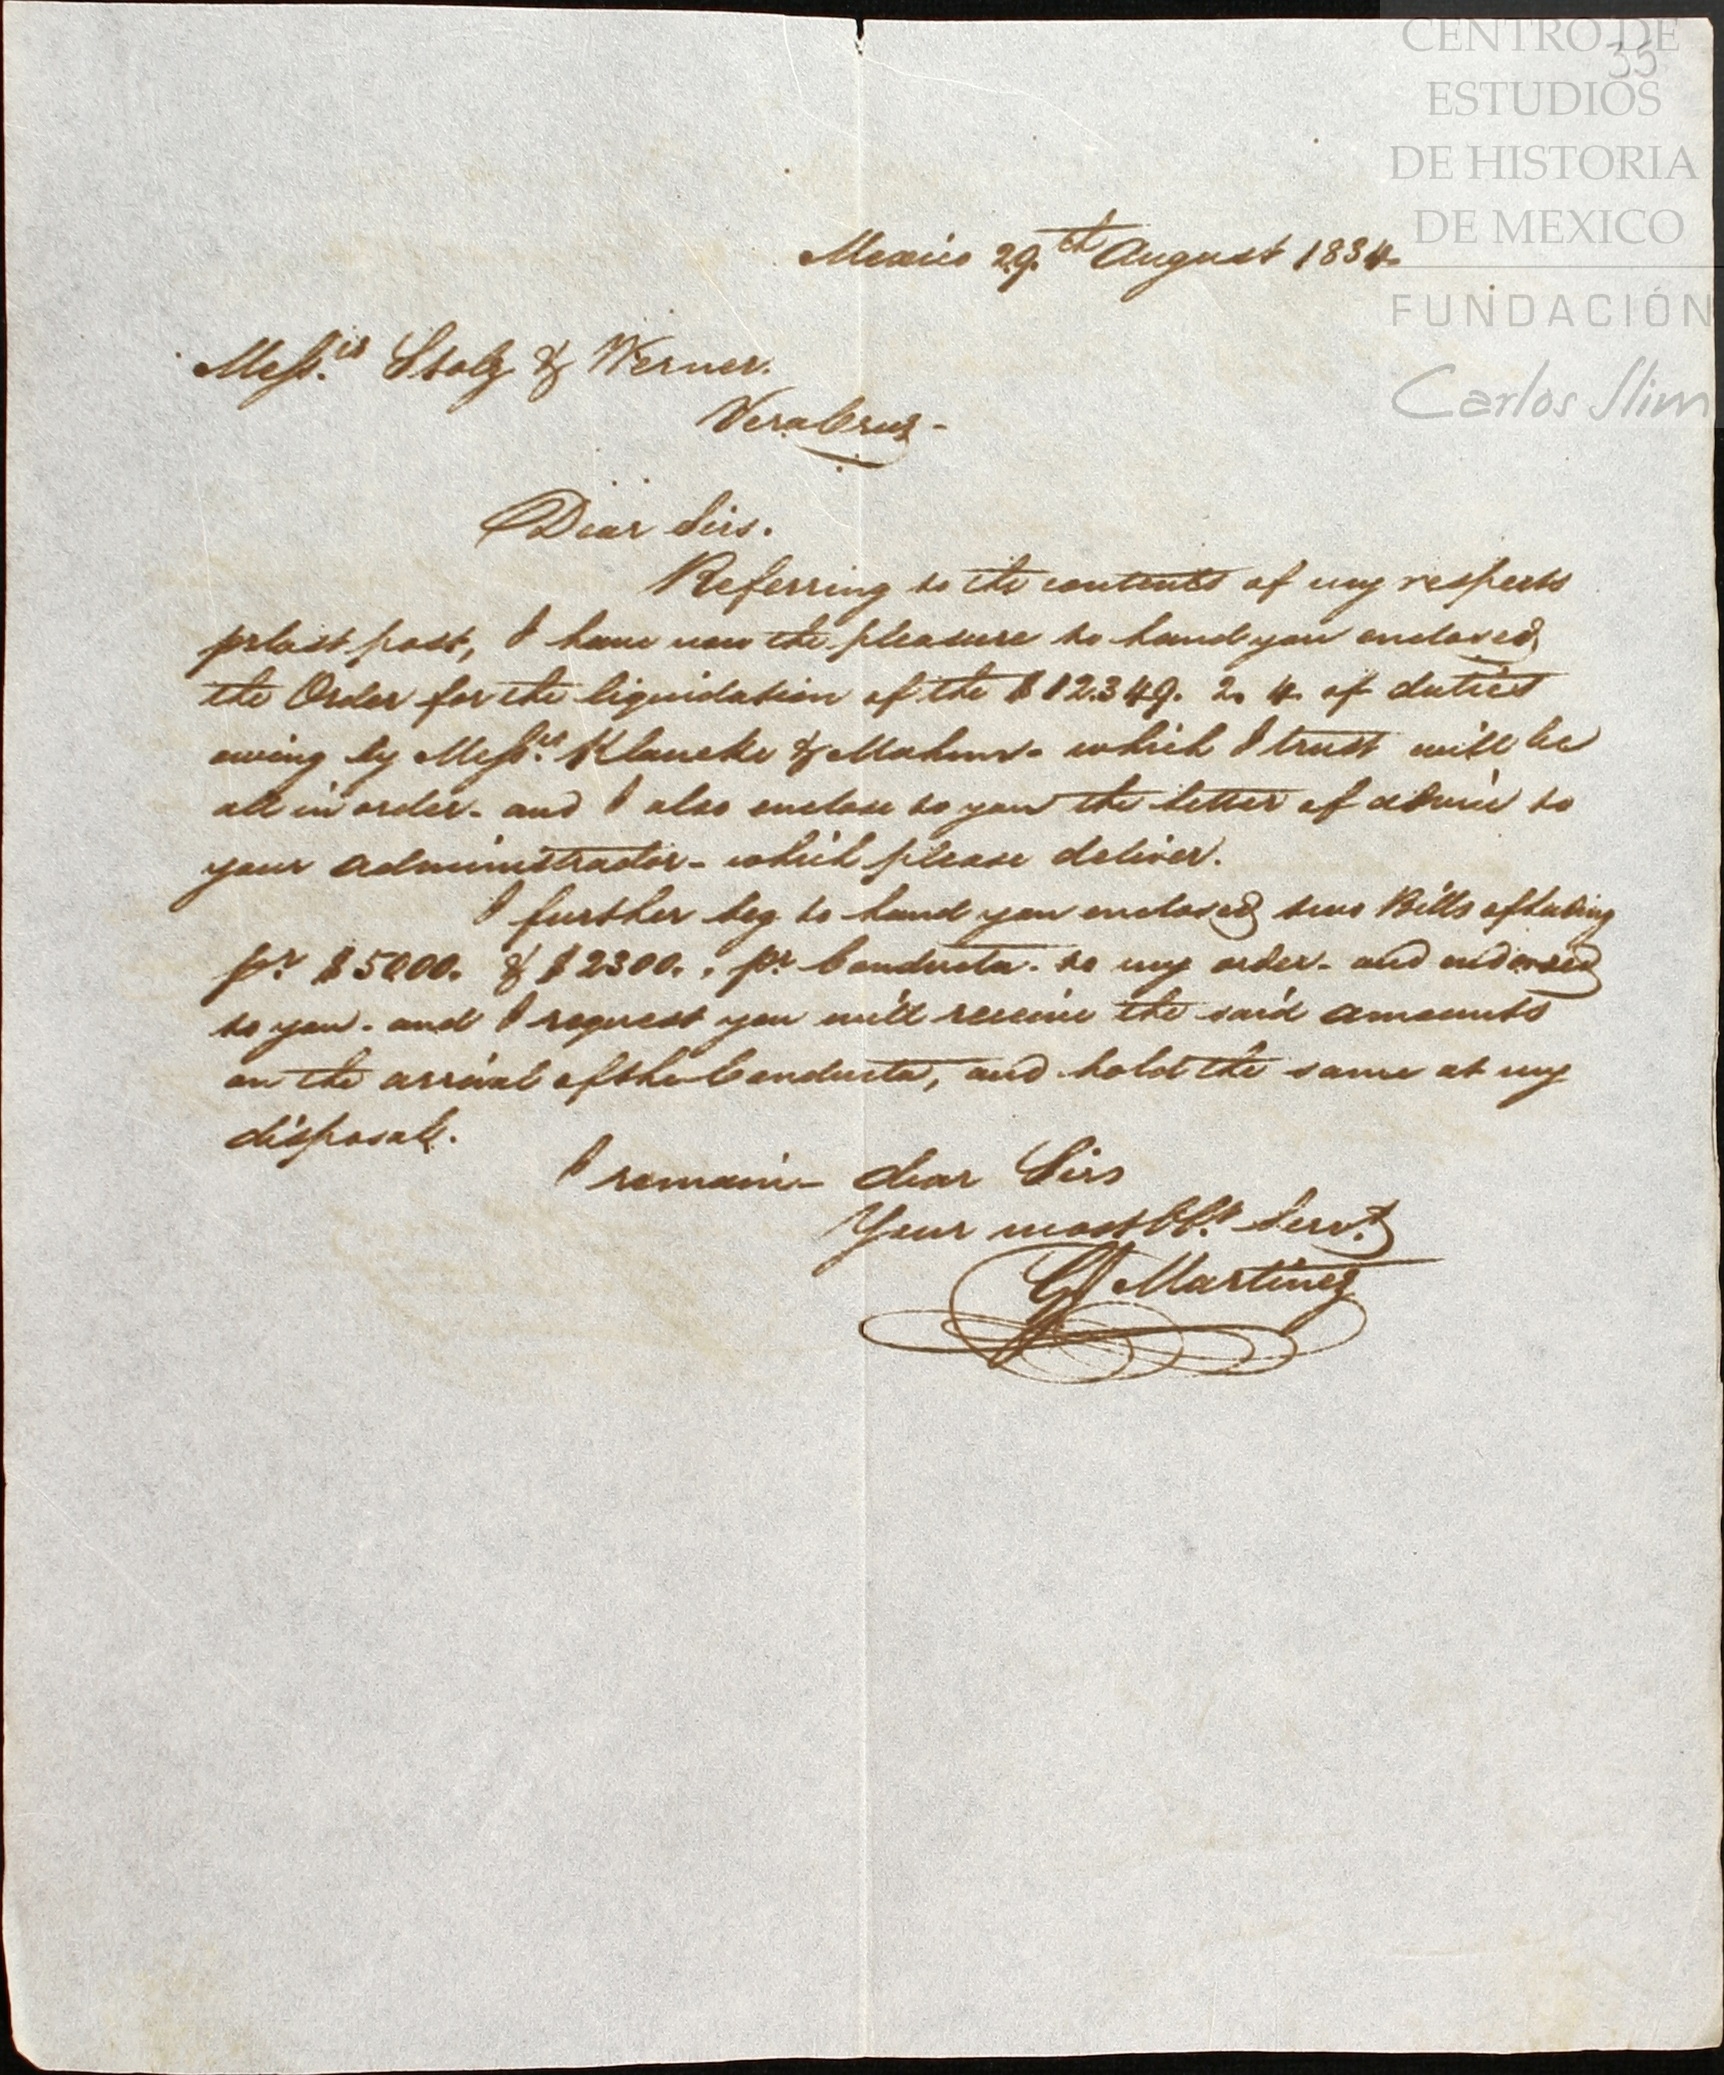 CENTRO DE
35
ESTUDIOS
DE HISTORIA
DE MEXICO
FUNDACIÓN
Carlos Slim
Mexico 29.th August 1834.
Messrs. Stolz & Werner.
Vera Cruz -
Dear Sirs.
Referring to the contents of my respects
pr last post, I have now the pleasure to hand you enclosed
the Order for the liquidation of the $12.349. 2. 4. of duties
owing by Messrs. & which I trust will be
all in order - and I also enclose to you the letter of advice to
your administrator - which please deliver.
I further beg to hand you enclosed two Bills of Lading
pr. $5000. & $2300., pr. Conducta - to my order - and endorsed
to you - and I request you will receive the said amounts
on the arrival of the Conducta, and hold the same at my
disposal.
I remain - dear Sirs
Your most Ob.t Serv.t
Martinez